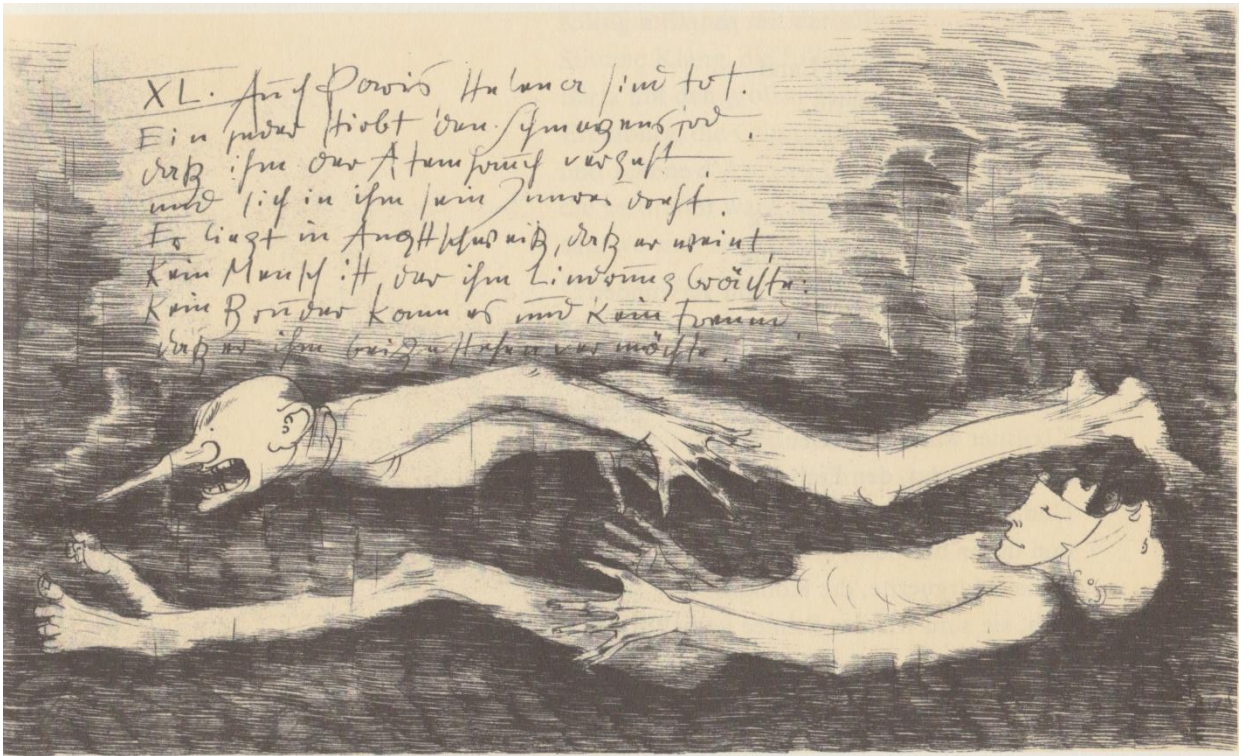 XL. Auch Paris Helena sind tot.
Ein jeder stirbt den Schmerzenstod,
daß ihm der Atemhauch vergeht
und sich in ihm sein Innres dreht.
Er liegt in Angstschweiß, daß er weint,
Kein Mensch ist, der ihm Linderung brächte:
Kein Bruder kann es und kein Freund,
daß er ihm beizustehen vermöchte.